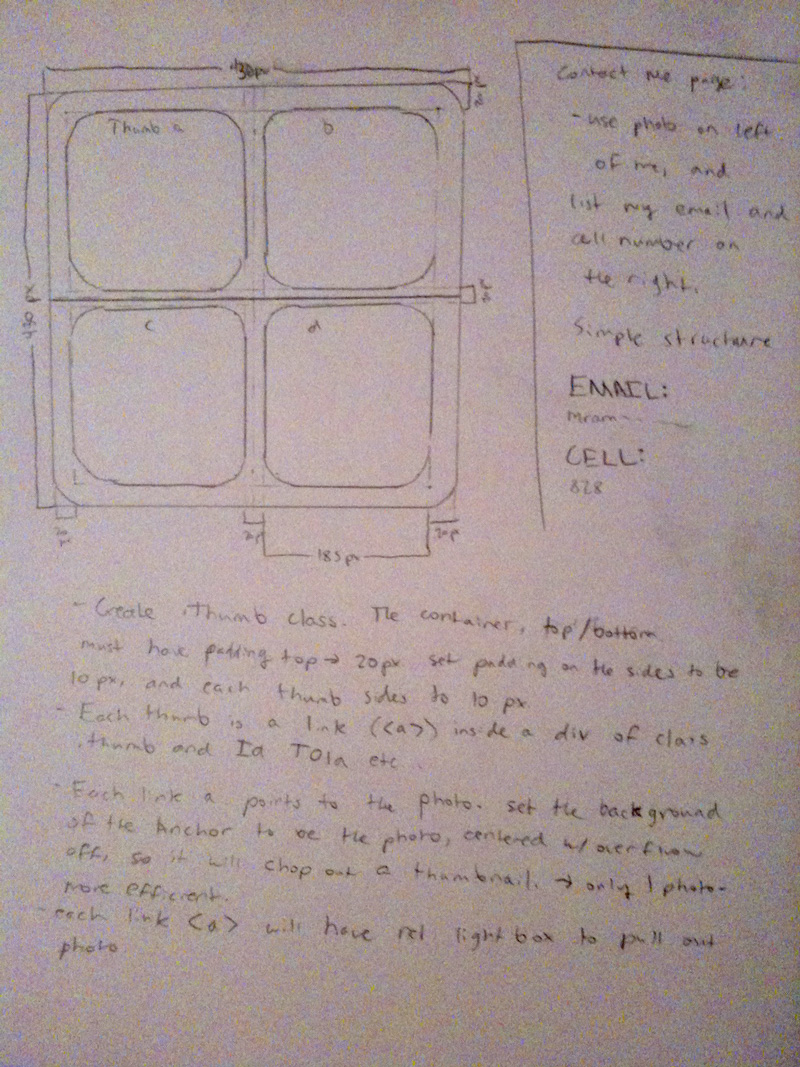 430px
Thumb a
b
c
d
430 px
20
px
185px
20px
Contact me page:
- use photo on left
of me, and
list my email and
cell number on
the right.
Simple structure
EMAIL:
CELL:
828
- Create .Thumb class. The container, top/bottom
must have padding top → 20px. set padding on the sides to be
10 px, and each thumb sides to 10 px.
- Each thumb is a link (<a>) inside a div of class
.thumb and Id T01a etc.
- Each link a points to the photo. set the background
of the Anchor to be the photo, centered w/ overflow
off, so it will chop out a thumbnail. → only 1 photo-
more efficient.
- each link <a> will have rel lightbox to pull out
photo